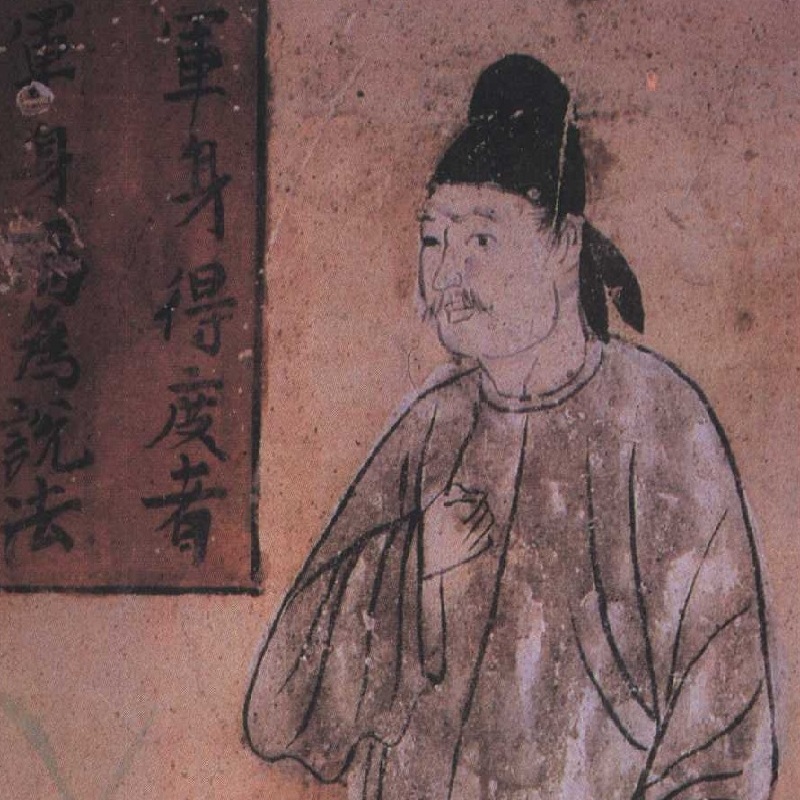 軍身得度者
軍身而為說法